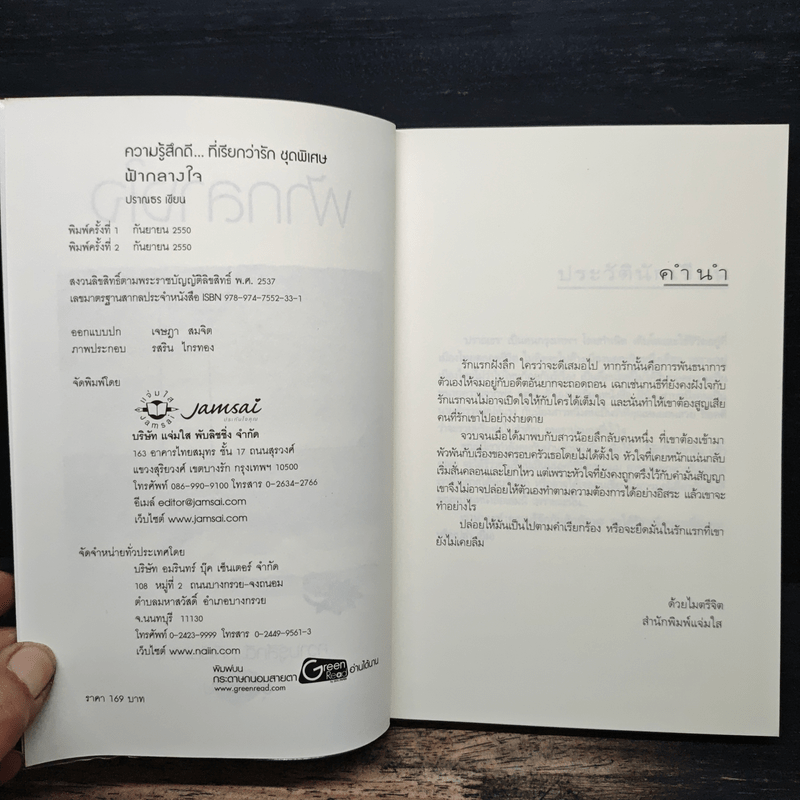 ความรู้สึกดี... ที่เรียกว่ารัก ชุดพิเศษ
ฟ้ากลางใจ
ปราณธร เขียน
พิมพ์ครั้งที่ 1 กันยายน 2550
พิมพ์ครั้งที่ 2 กันยายน 2550
สงวนลิขสิทธิ์ตามพระราชบัญญัติลิขสิทธิ์ พ.ศ. 2537
เลขมาตรฐานสากลประจำหนังสือ ISBN 978-974-7552-33-1
ออกแบบปก เจษฎา สมจิต
ภาพประกอบ รสริน ไกรทอง
จัดพิมพ์โดย
แจ่มใส
Jamsai
JAMSAI
บริษัท แจ่มใส พับลิชชิ่ง จำกัด
163 อาคารไทยสมุทร ชั้น 17 ถนนสุรวงศ์
แขวงสุริยวงศ์ เขตบางรัก กรุงเทพฯ 10500
โทรศัพท์ 086-990-9100 โทรสาร 0-2634-2766
อีเมล์ editor@jamsai.com
เว็บไซต์ www.jamsai.com
จัดจำหน่ายทั่วประเทศโดย
บริษัท อมรินทร์ บุ๊ค เซ็นเตอร์ จำกัด
108 หมู่ที่ 2 ถนนบางกรวย-จงถนอม
ตำบลมหาสวัสดิ์ อำเภอบางกรวย
จ.นนทบุรี 11130
โทรศัพท์ 0-2423-9999 โทรสาร 0-2449-9561-3
เว็บไซต์ www.naiin.com
พิมพ์บน
กระดาษถนอมสายตา Green Read อ่านได้นาน
www.greenread.com
ราคา 169 บาท
คำนำ
รักแรกฝังลึก ใครว่าจะดีเสมอไป หากรักนั้นคือการพันธนาการ
ตัวเองให้จมอยู่กับอดีตอันยากจะถอดถอน เฉกเช่นภนธีที่ยังคงฝังใจกับ
รักแรกจนไม่อาจเปิดใจให้กับใครได้เต็มใจ และนั่นทำให้เขาต้องสูญเสีย
คนที่รักเขาไปอย่างง่ายดาย
จวบจนเมื่อได้มาพบกับสาวน้อยลึกลับคนหนึ่ง ที่เขาต้องเข้ามา
พัวพันกับเรื่องของครอบครัวเธอโดยไม่ได้ตั้งใจ หัวใจที่เคยหนักแน่นกลับ
เริ่มสั่นคลอนและโยกไหว แต่เพราะหัวใจที่ยังคงถูกตรึงไว้กับคำมั่นสัญญา
เขาจึงไม่อาจปล่อยให้ตัวเองทำตามความต้องการได้อย่างอิสระ แล้วเขาจะ
ทำอย่างไร
ปล่อยให้มันเป็นไปตามคำเรียกร้อง หรือจะยึดมั่นในรักแรกที่เขา
ยังไม่เคยลืม
ด้วยไมตรีจิต
สำนักพิมพ์แจ่มใส